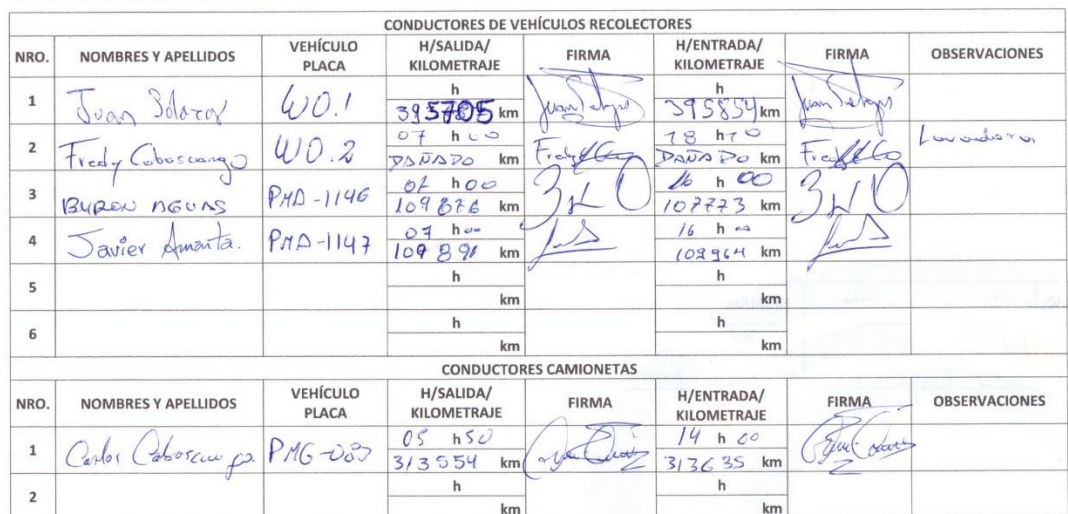 CONDUCTORES DE VEHÍCULOS RECOLECTORES
NRO. NOMBRES Y APELLIDOS VEHÍCULO PLACA H/SALIDA/ KILOMETRAJE FIRMA H/ENTRADA/ KILOMETRAJE FIRMA OBSERVACIONES
1 Juan Salazar WO.1 h 395705 km h 395854 km
2 Fredy Caboscango WO.2 07 h 00 DAÑADO km 18 h 10 DAÑADO km
3 BYRON AGUAS PMA-1146 h 00 km 16 h 00 107773 km
4 Javier Amanta. PMA-1147 07 h 00 109891 km 16 h 00 109964 km
5 h km h km
6 h km h km
CONDUCTORES CAMIONETAS
NRO. NOMBRES Y APELLIDOS VEHÍCULO PLACA H/SALIDA/ KILOMETRAJE FIRMA H/ENTRADA/ KILOMETRAJE FIRMA OBSERVACIONES
1 Carlos Caboscango 05 h 50 313554 km 14 h 00 313635 km
2 h km h km